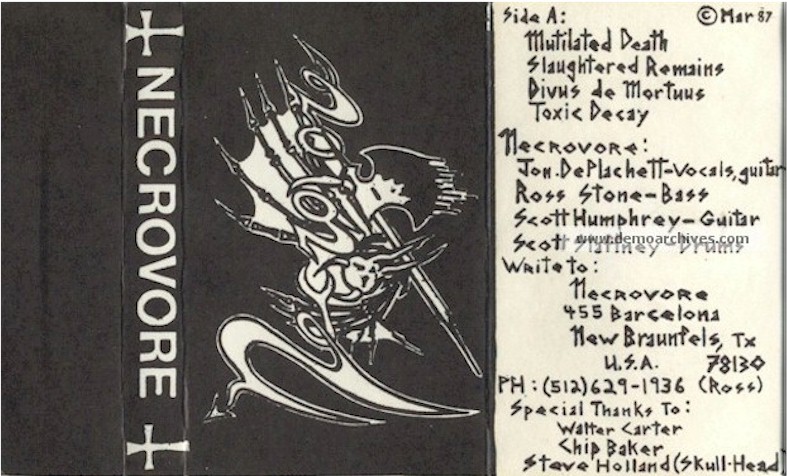 NECROVORE
Necrovore
Side A: © Mar 87
Mutilated Death
Slaughtered Remains
Divus de Mortuus
Toxic Decay
Necrovore:
Jon. DePlachett-Vocals, guitar
Ross Stone-Bass
Scott Humphrey-Guitar
Scott Drums
www.demoarchives.com
Write to:
Necrovore
455 Barcelona
New Braunfels, Tx
U.S.A. 78130
PH: (512)629-1936 (Ross)
Special Thanks To:
Walter Carter
Chip Baker
Steve Holland (Skull-Head)